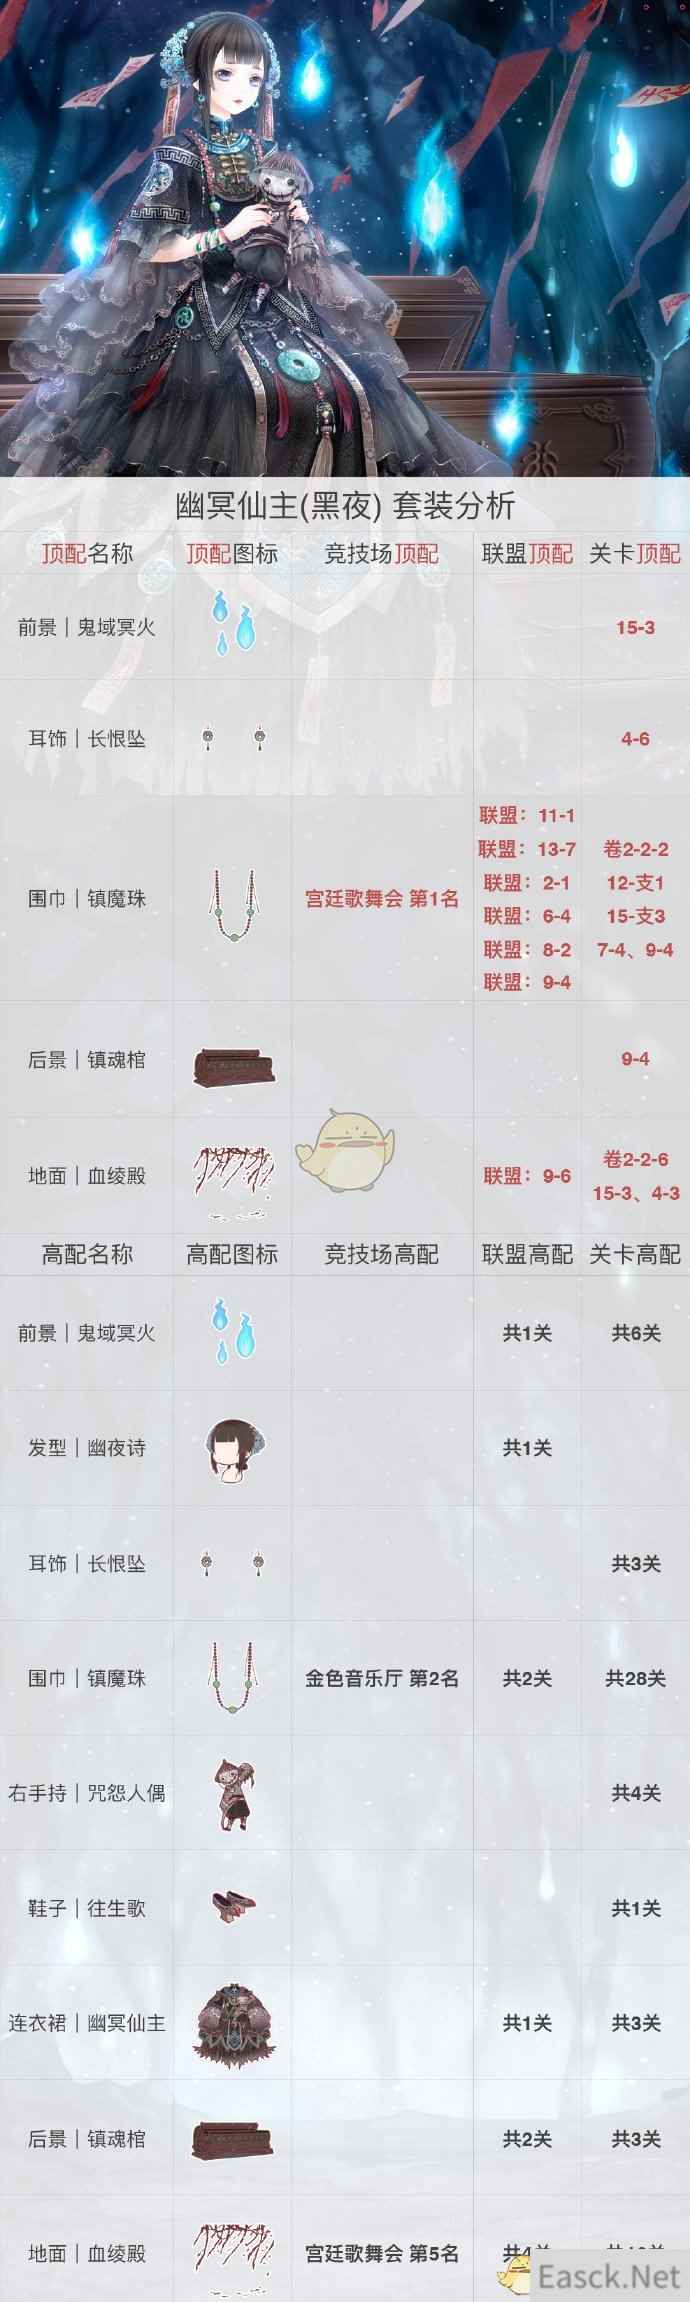 幽冥仙主(黑夜) 套装分析
顶配名称 顶配图标 竞技场顶配 联盟顶配 关卡顶配
前景｜鬼域冥火 15-3
耳饰｜长恨坠 4-6
联盟：11-1
联盟：13-7 卷2-2-2
联盟：2-1 12-支1
围巾｜镇魔珠 宫廷歌舞会 第1名
联盟：6-4 15-支3
联盟：8-2 7-4、9-4
联盟：9-4
后景｜镇魂棺 9-4
卷2-2-6
地面｜血绫殿 联盟：9-6
15-3、4-3
高配名称 高配图标 竞技场高配 联盟高配 关卡高配
前景｜鬼域冥火 共1关 共6关
发型｜幽夜诗 共1关
耳饰｜长恨坠 共3关
围巾｜镇魔珠 金色音乐厅 第2名 共2关 共28关
右手持｜咒怨人偶 共4关
鞋子｜往生歌 共1关
连衣裙｜幽冥仙主 共1关 共3关
后景｜镇魂棺 共2关 共3关
地面｜血绫殿 宫廷歌舞会 第5名
Easck.Net